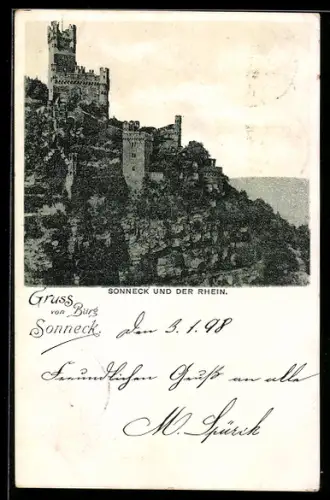 SONNECK UND DER RHEIN.
Gruss
von Burg
Sonneck.
Den 3.1.98
Freundlichen Gruß an alle
M.